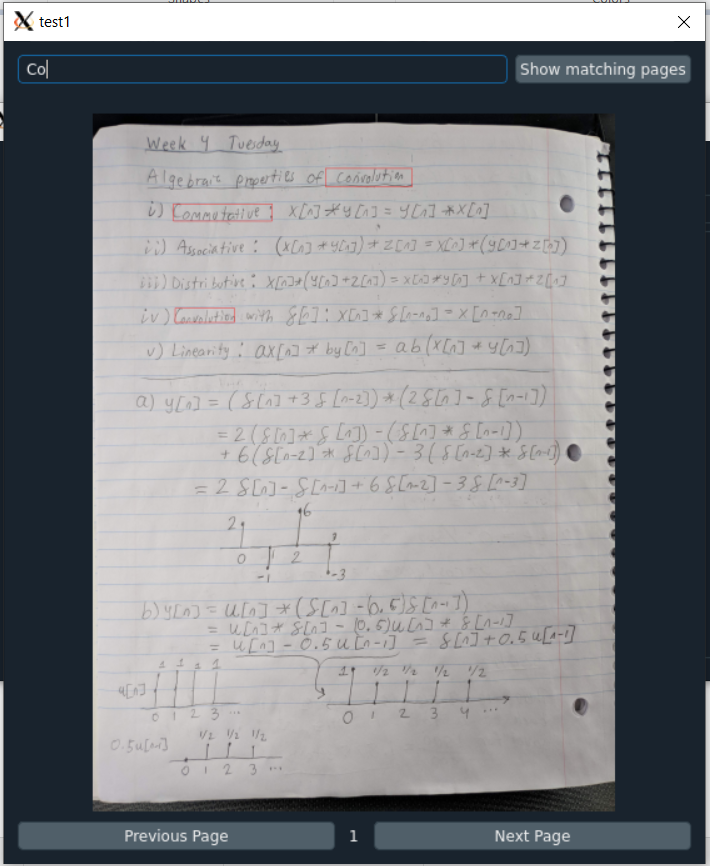 test1
Co
Show matching pages
Week 4 Tuesday
Algebraic properties of Convolution
i) Commutative: x[n]*y[n] = y[n]*x[n]
ii) Associative: (x[n]*y[n])*z[n] = x[n]*(y[n]*z[n])
iii) Distributive: x[n]*(y[n]+z[n]) = x[n]*y[n] + x[n]*z[n]
iv) Convolution with δ[n]: x[n]*δ[n-n₀] = x[n-n₀]
v) Linearity: ax[n] * by[n] = ab(x[n] * y[n])
a) y[n] = (δ[n] + 3δ[n-2])*(2δ[n] - δ[n-1])
= 2(δ[n]*δ[n]) - (δ[n]*δ[n-1])
+ 6(δ[n-2]*δ[n]) - 3(δ[n-2]*δ[n-1])
= 2δ[n] - δ[n-1] + 6δ[n-2] - 3δ[n-3]
2 6
0 1 2
-1 -3
b) y[n] = u[n]*(δ[n] - (0.5)δ[n-1])
= u[n]*δ[n] - (0.5)u[n]*δ[n-1]
= u[n] - 0.5u[n-1] = δ[n] + 0.5u[n-1]
1 1 1 1
u[n]
0 1 2 3 ...
1 1/2 1/2 1/2 1/2
0 1 2 3 4 ...
0.5u[n-1] 1/2 1/2 1/2
0 1 2 3 ...
Previous Page 1 Next Page